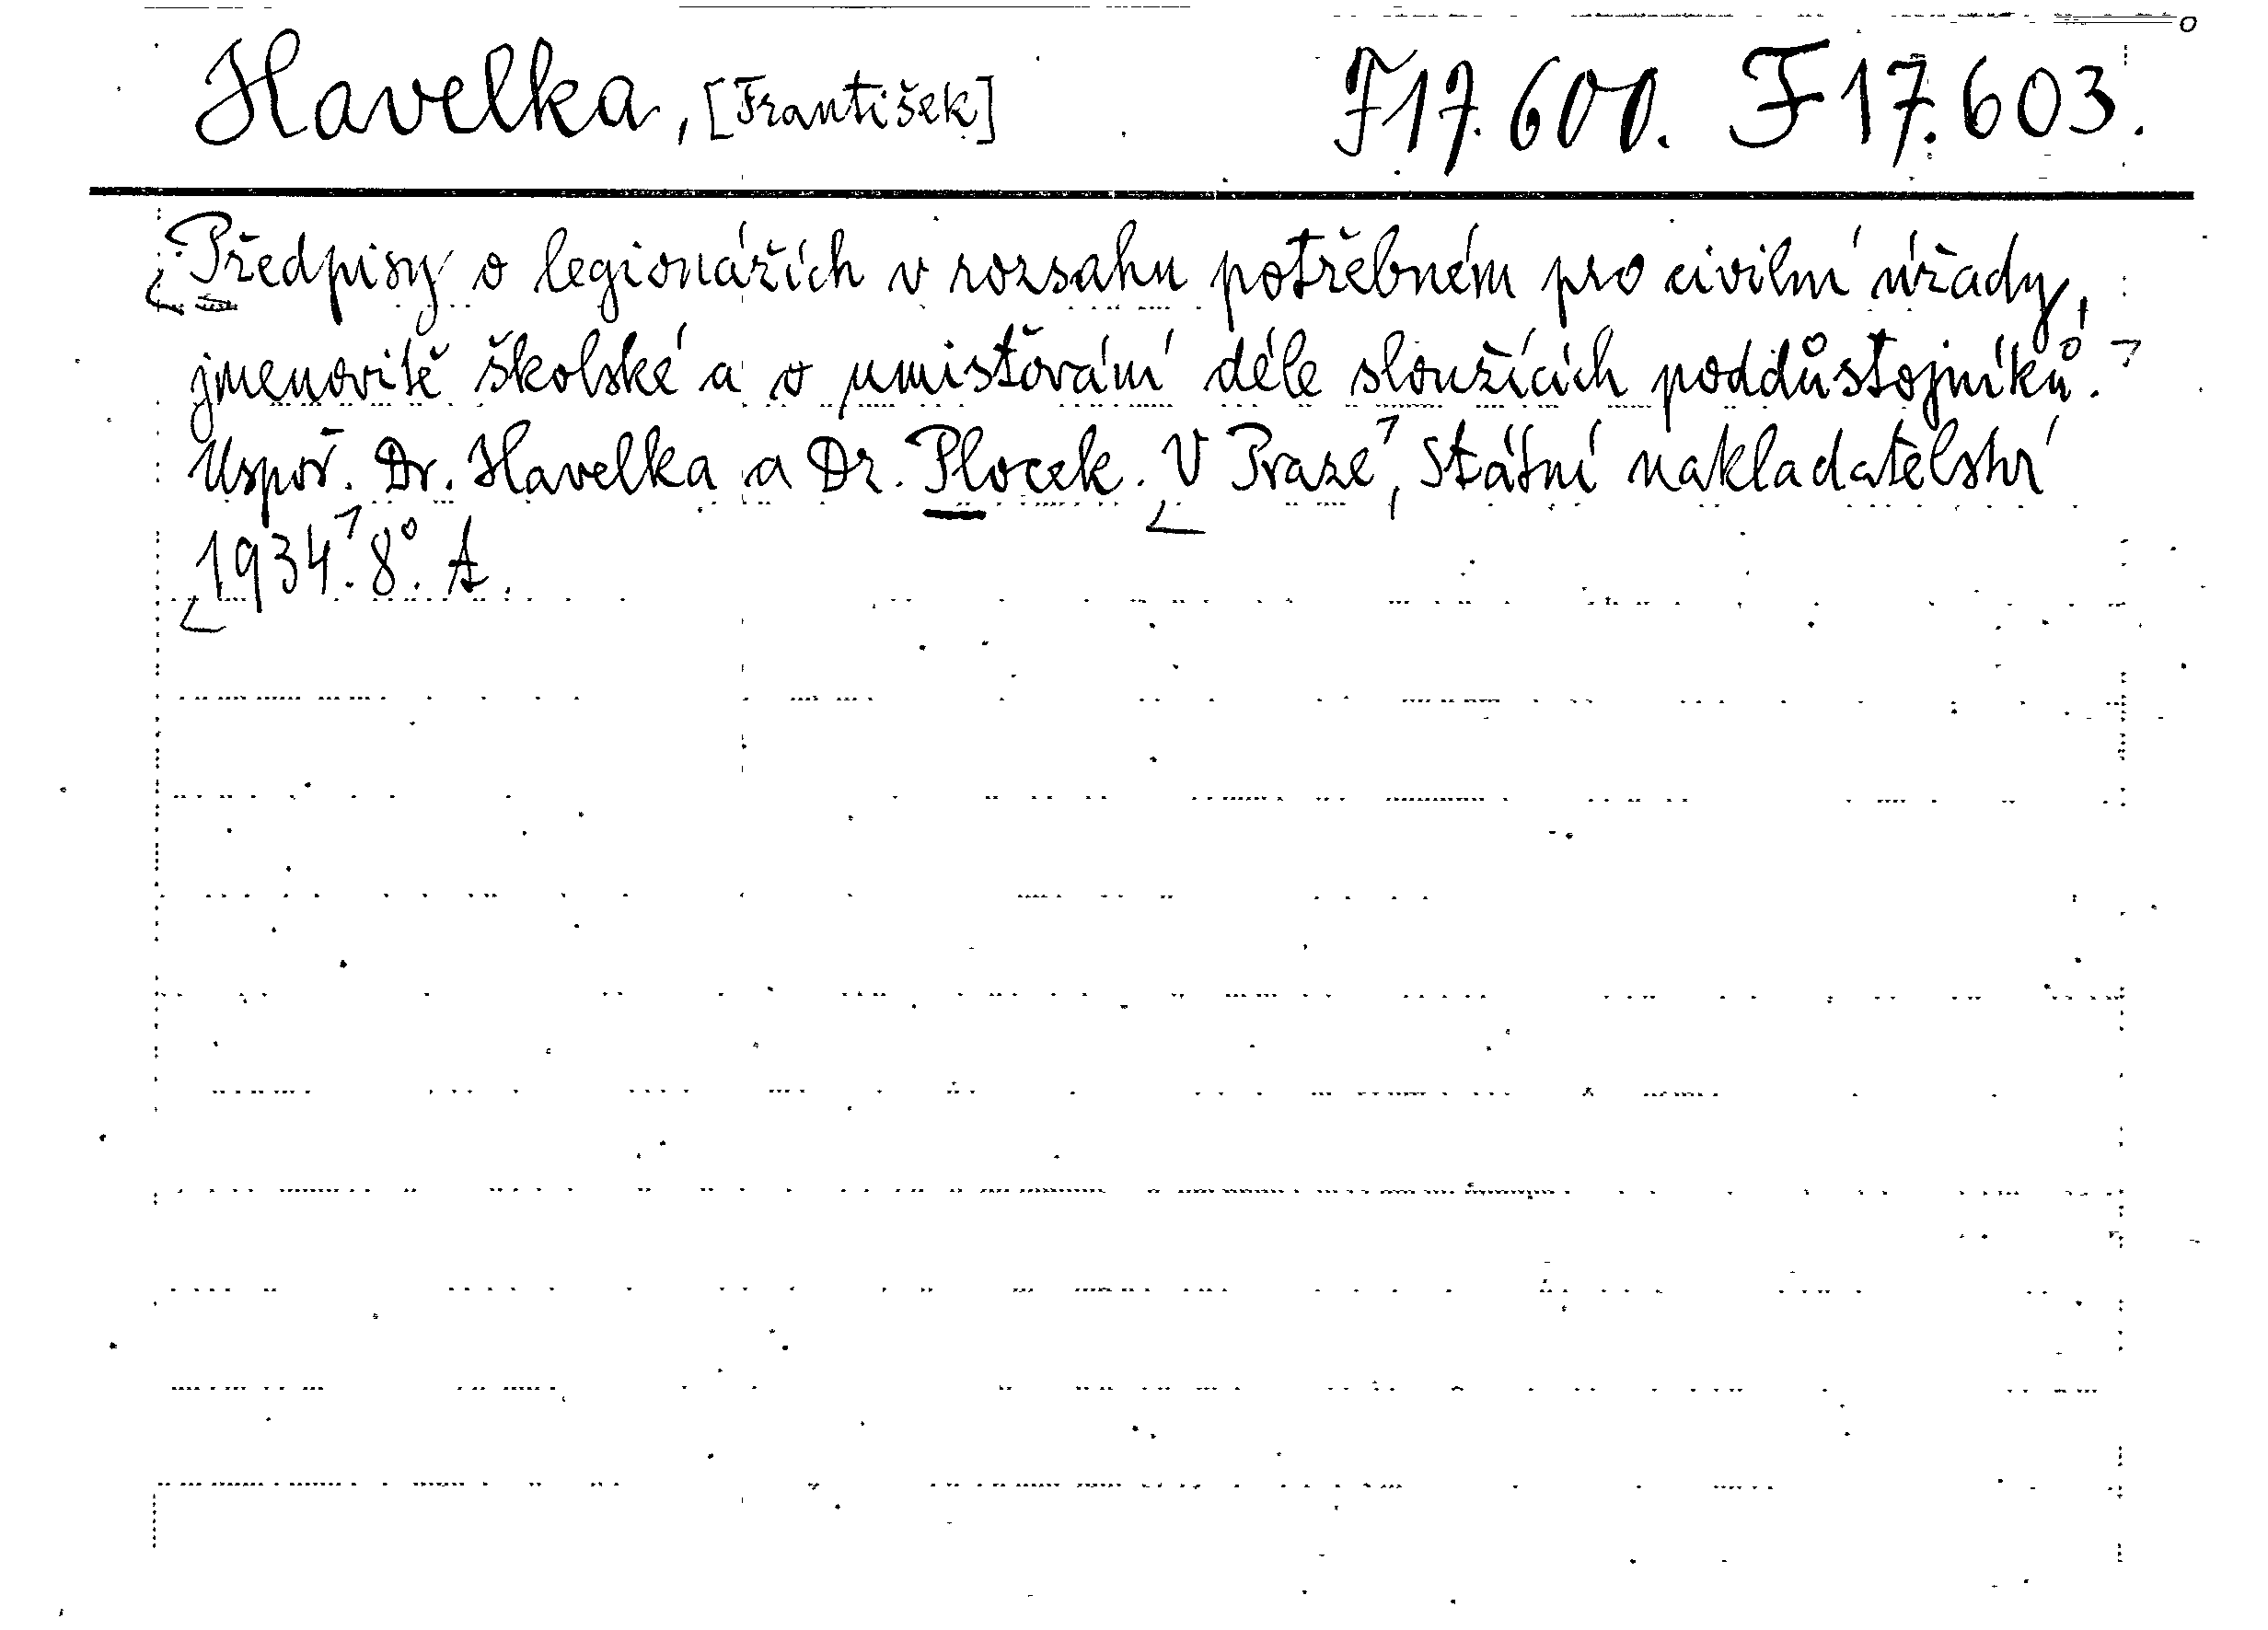 Havelka, [František] F17.600. F17.603.
Předpisy o legionářích v rozsahu potřebném pro civilní úřady,
jmenovitě školské a o umisťování déle sloužících poddůstojníků.
Uspoř. Dr. Havelka a Dr. Plocek. V Praze, Státní nakladatelství
1934. 8°. A.